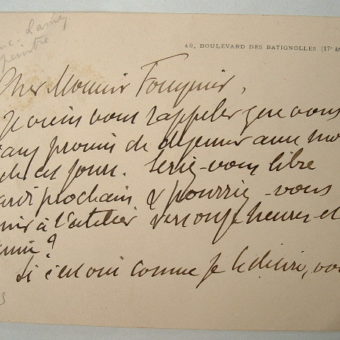 48, BOULEVARD DES BATIGNOLLES (17e
Cher Monsieur Fouquier,
Je viens vous rappeler que vous
promis de déjeuner avec mo
jours. Seriez-vous libre
ardi prochain & pourriez-vous
nir à l'atelier vers onze heures et
emie?
Si c'est oui comme je le désire, vou